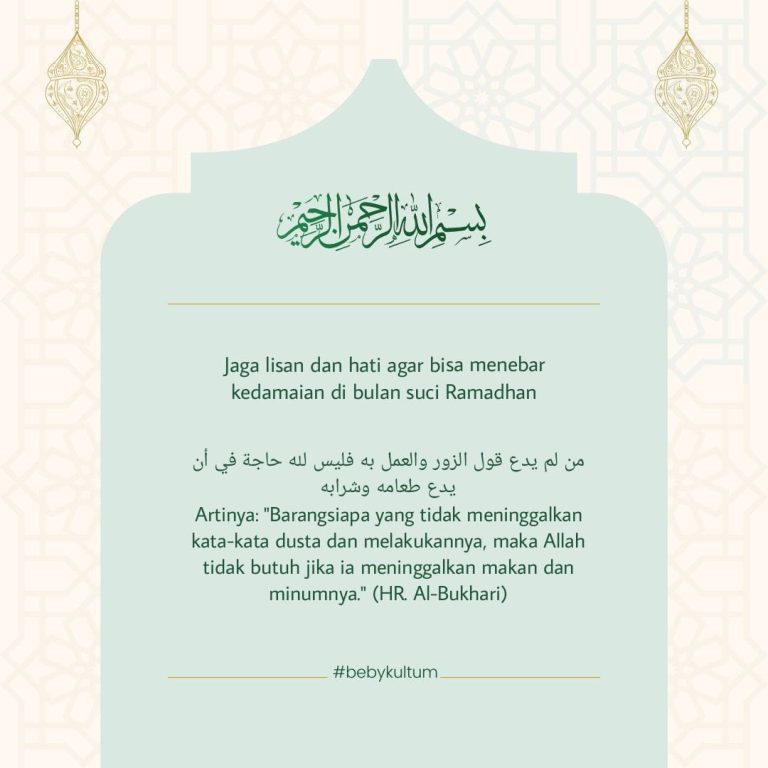 بِسْمِ اللهِ الرَّحْمَنِ الرَّحِيْمِ
Jaga lisan dan hati agar bisa menebar
kedamaian di bulan suci Ramadhan
من لم يدع قول الزور والعمل به فليس لله حاجة في أن
يدع طعامه وشرابه
Artinya: "Barangsiapa yang tidak meninggalkan
kata-kata dusta dan melakukannya, maka Allah
tidak butuh jika ia meninggalkan makan dan
minumnya." (HR. Al-Bukhari)
#bebykultum